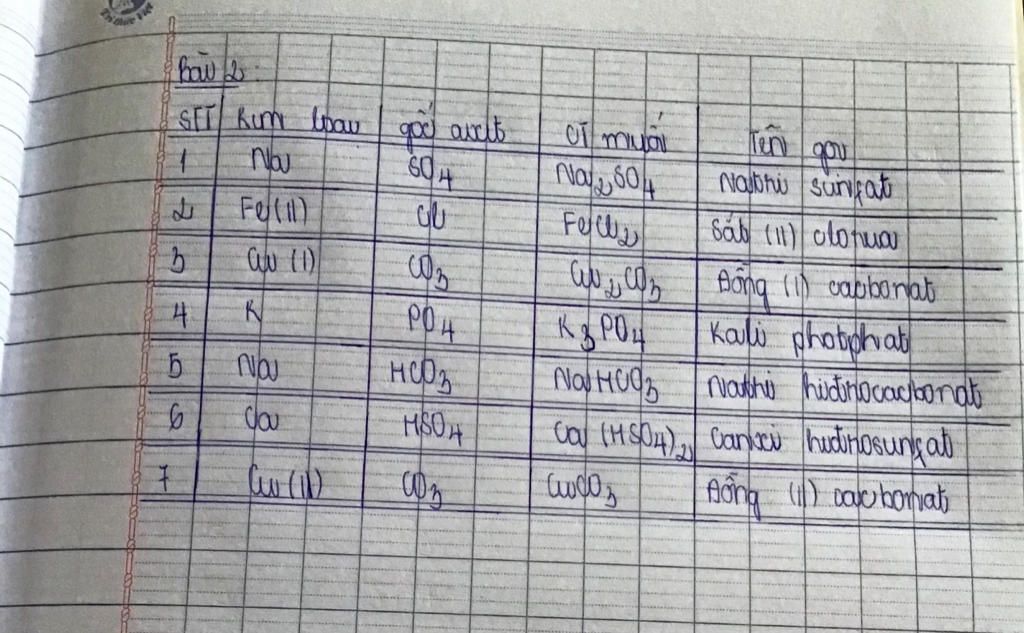 Tri Thức Việt
Bài 2:
STT Kim loại gốc axit CT muối Tên gọi
1 Na SO4 Na2SO4 Natri sunfat
2 Fe(II) Cl FeCl2 Sắt (II) clorua
3 Cu (I) CO3 Cu2CO3 Đồng (I) cacbonat
4 K PO4 K3PO4 Kali photphat
5 Na HCO3 NaHCO3 Natri hiđrocacbonat
6 Ca HSO4 Ca (HSO4)2 Canxi hiđrosunfat
7 Cu (II) CO3 CuCO3 Đồng (II) cacbonat